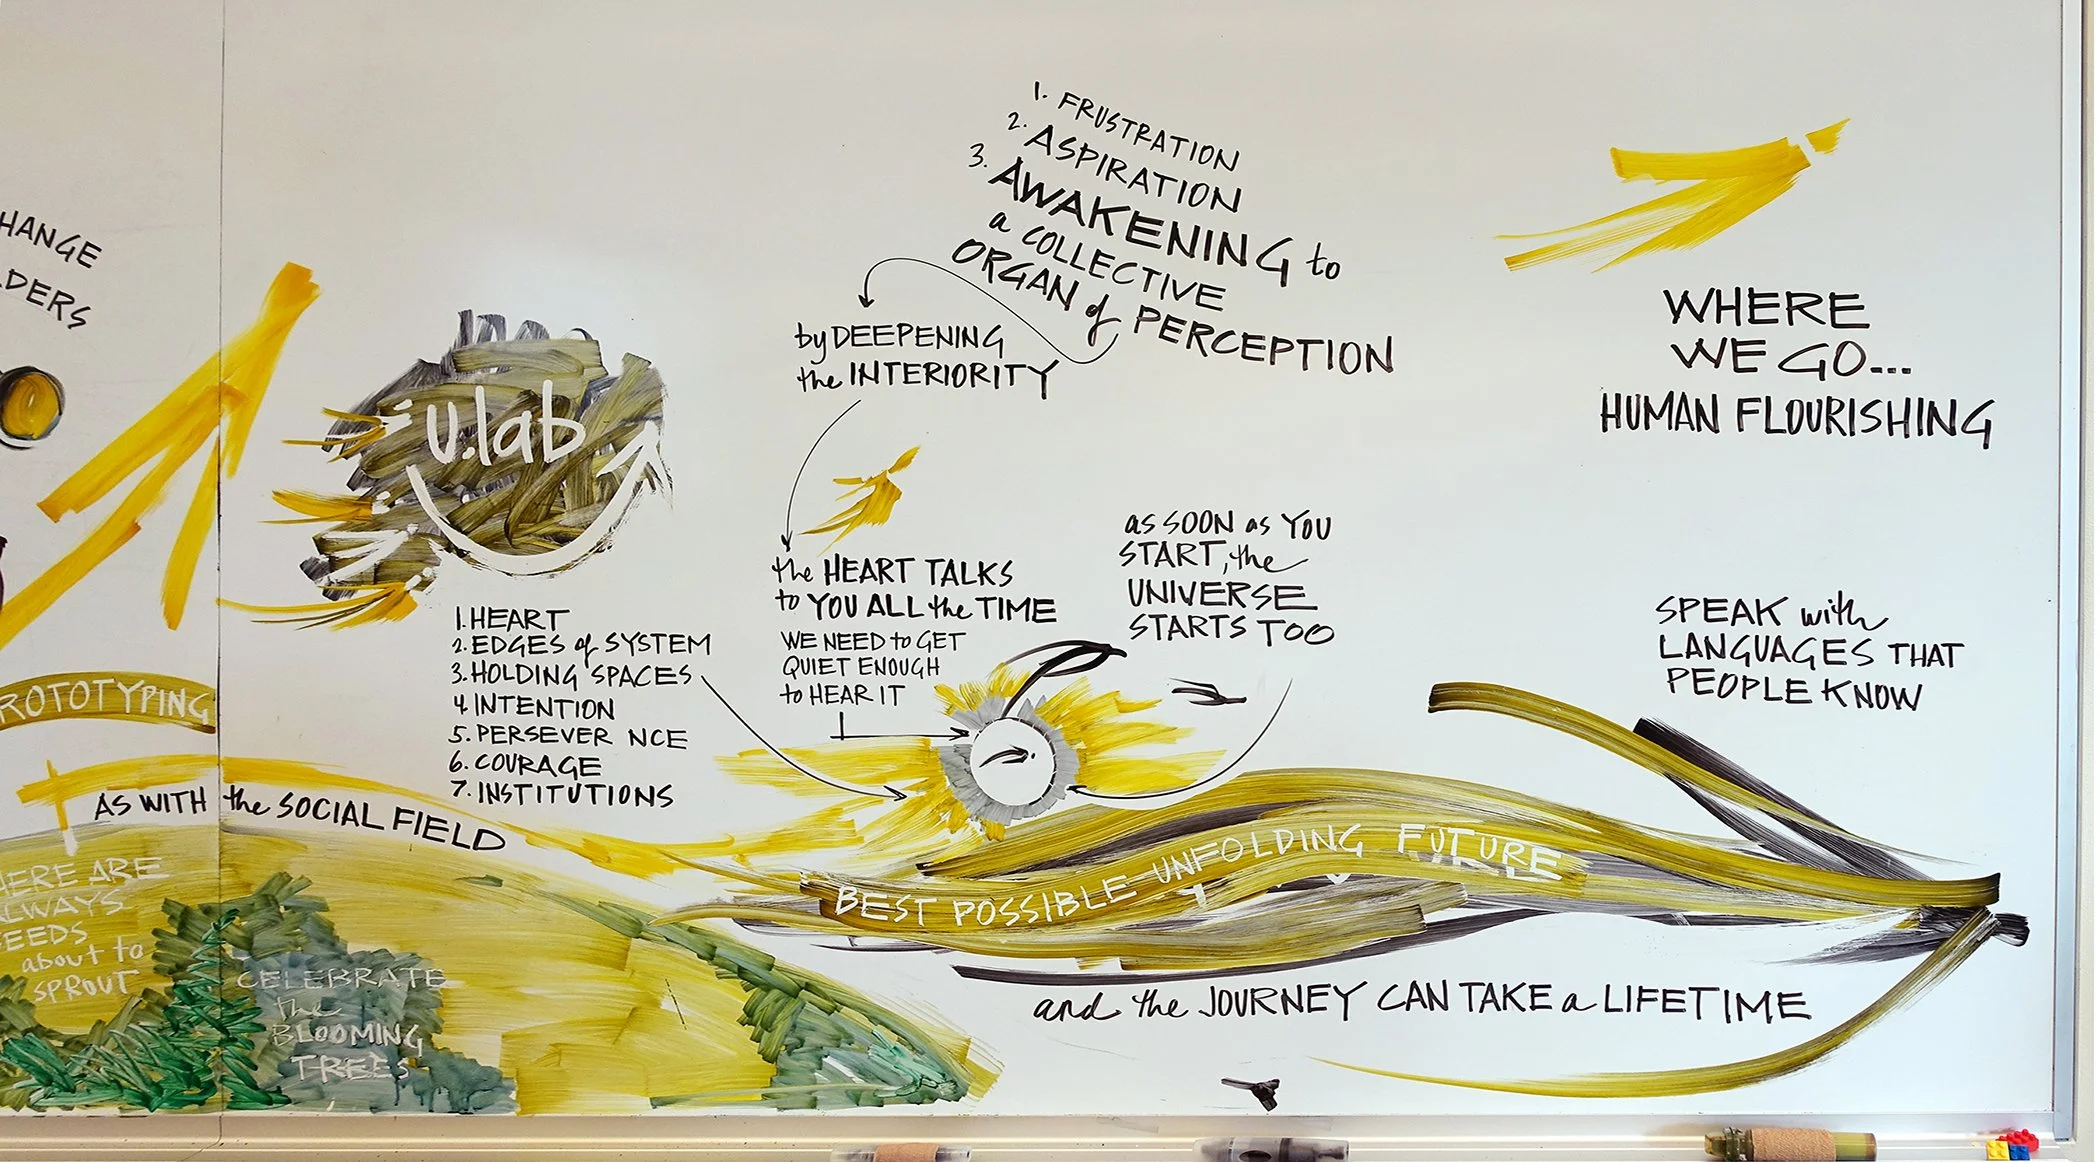 HANGE
LDERS
ROTOTYPING
AS WITH the SOCIAL FIELD
HERE ARE
ALWAYS
SEEDS
about to
SPROUT
CELEBRATE
the
BLOOMING
TREES
u.lab
1. HEART
2. EDGES of SYSTEM
3. HOLDING SPACES
4. INTENTION
5. PERSEVER NCE
6. COURAGE
7. INSTITUTIONS
1. FRUSTRATION
2. ASPIRATION
3. AWAKENING to
a COLLECTIVE
ORGAN of PERCEPTION
by DEEPENING
the INTERIORITY
the HEART TALKS
to YOU ALL the TIME
WE NEED to GET
QUIET ENOUGH
to HEAR IT
as SOON as YOU
START, the
UNIVERSE
STARTS TOO
BEST POSSIBLE UNFOLDING FUTURE
and the JOURNEY CAN TAKE a LIFETIME
WHERE
WE GO...
HUMAN FLOURISHING
SPEAK with
LANGUAGES THAT
PEOPLE KNOW